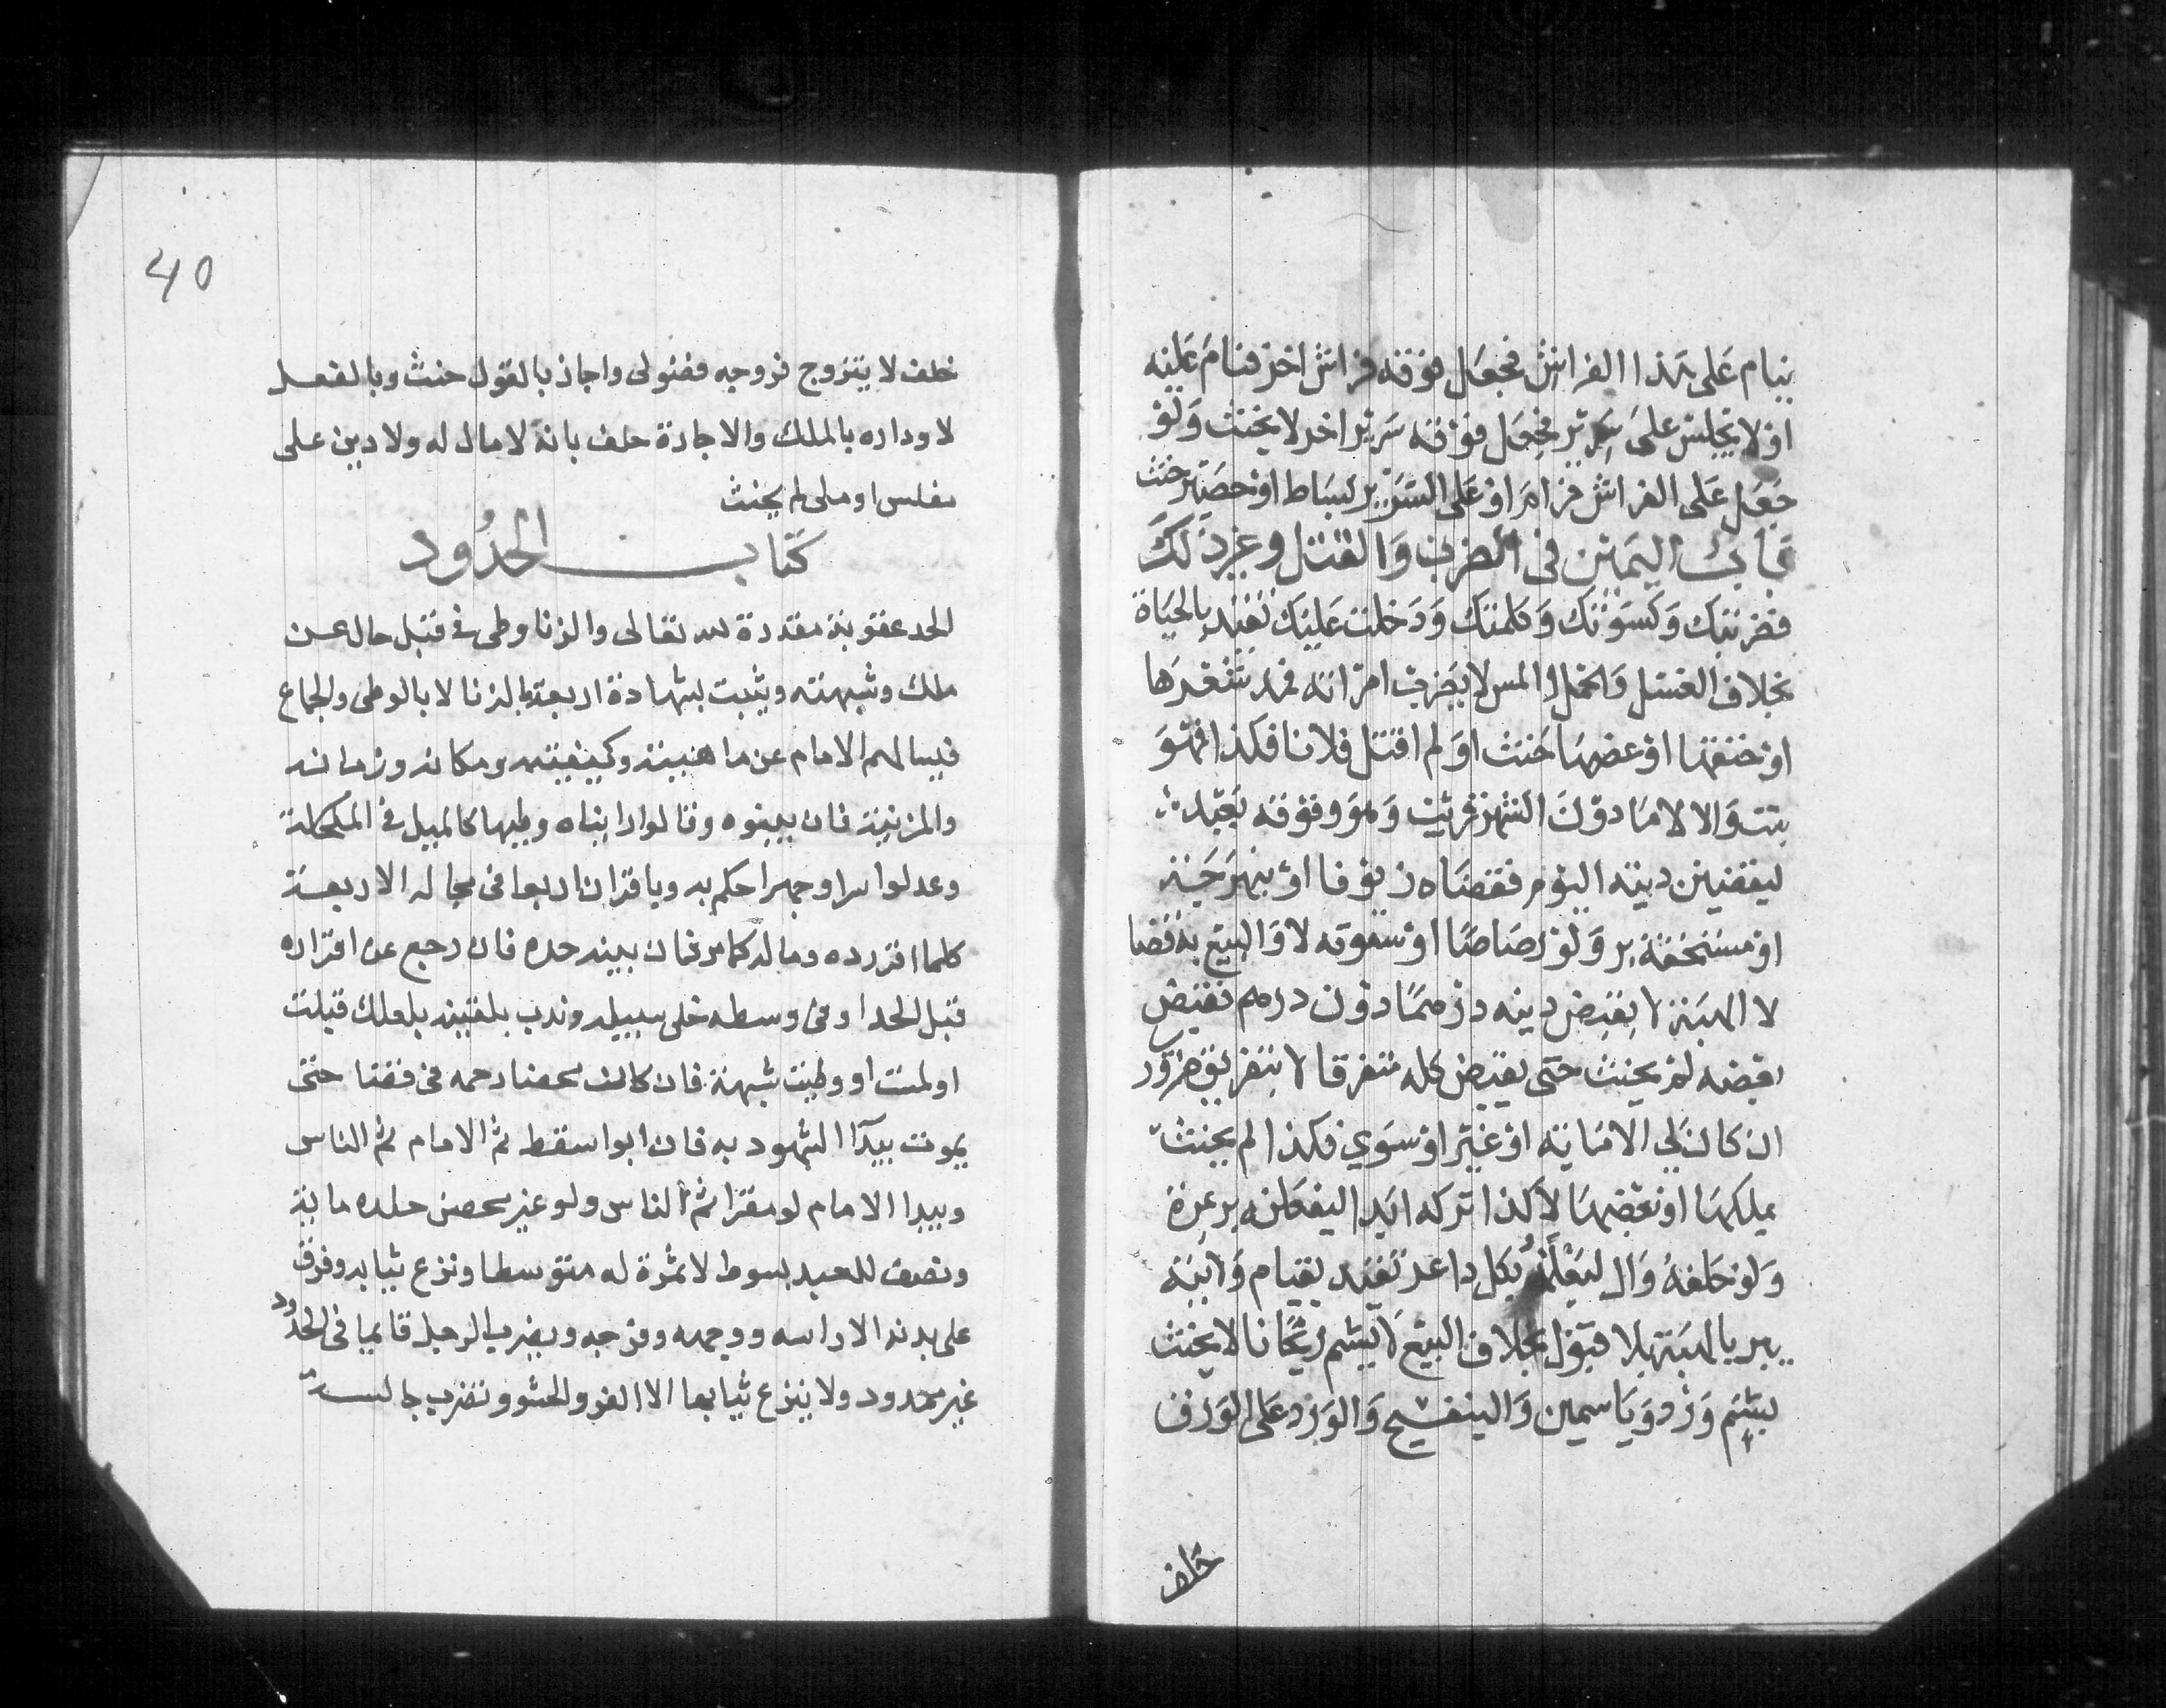 ينام على هذا الفراش فجعل فوقه فراش اخر فنام عليه
او لا يجلس على سرير فجعل فوقه سرير اخر لا يحنث ولو
جعل على الفراش قرام او على السرير بساط او حصير حنث
باب اليمين في الضرب والقتل وغير ذلك
فضربتك وكسوتك وكلمتك ودخلت عليك تقيد بالحياة
بخلاف الغسل والحمل والمس لا يضرب امراته فمد شعرها
او خنقها او عضها حنث او لم اقتل فلانا فكذا فهو
ميت والا لا ما دون الشهر قريب وهو وفوقه بعيد
ليقضين دينه اليوم فقضاه زيوفا او نبهرجة
او مستحقة بر ولو رصاصا او ستوقة لا والبيع به قضا
لا الهبة لا يقبض دينه درهما دون درهم فقبض
بعضه لم يحنث حتى يقبض كله متفرقا لا بتفريق ضرور
ان كان لي الا مايه او غير او سوي فكذا لم يحنث
بملكها او بعضها لا كذا تركه ابدا ليفعلنه بر بمرة
ولو حلفه وال ليعلمنه بكل داعر تقيد بقيام ولايته
يبر بالهبة بلا قبول بخلاف البيع لا يشم ريحانا لا يحنث
بشم ورد وياسمين والبنفسج والورد على الورق
حلف
40
حلف لا يتزوج فزوجه فضولى واجاز بالقول حنث وبالفعل
لا وداره بالملك والاجارة حلف بانه لا مال له ولا دين على
مفلس او ملى لم يحنث
كتاب الحدود
الحد عقوبة مقدرة لله تعالى والزنا وطى في قبل خال عن
ملك وشبهته ويثبت بشهادة اربعة بالزنا لا بالوطى والجماع
فيسالهم الامام عن ماهيته وكيفيته ومكانه وزمانه
والمزنية فان بينوه وقالوا رايناه وطيها كالميل في المكحلة
وعدلوا سرا وجهرا حكم به وباقراره اربعا في مجالسه الاربعة
كلما اقر رده وساله كما مر فان بينه حده فان رجع عن اقراره
قبل الحد او في وسطه خلى سبيله وندب تلقينه بلعلك قبلت
او لمست او وطيت بشبهة فان كان محصنا رجمه في فضا حتى
يموت يبدا الشهود به فان ابوا سقط ثم الامام ثم الناس
ويبدا الامام لو مقرا ثم الناس ولو غير محصن جلده ماية
ونصف للعبد بسوط لا ثمرة له متوسطا ونزع ثيابه وفرق
على بدنه الا راسه ووجهه وفرجه ويضرب الرجل قايما فى الحدود
غير ممدود ولا ينزع ثيابها الا الفرو والحشو وتضرب جالسة